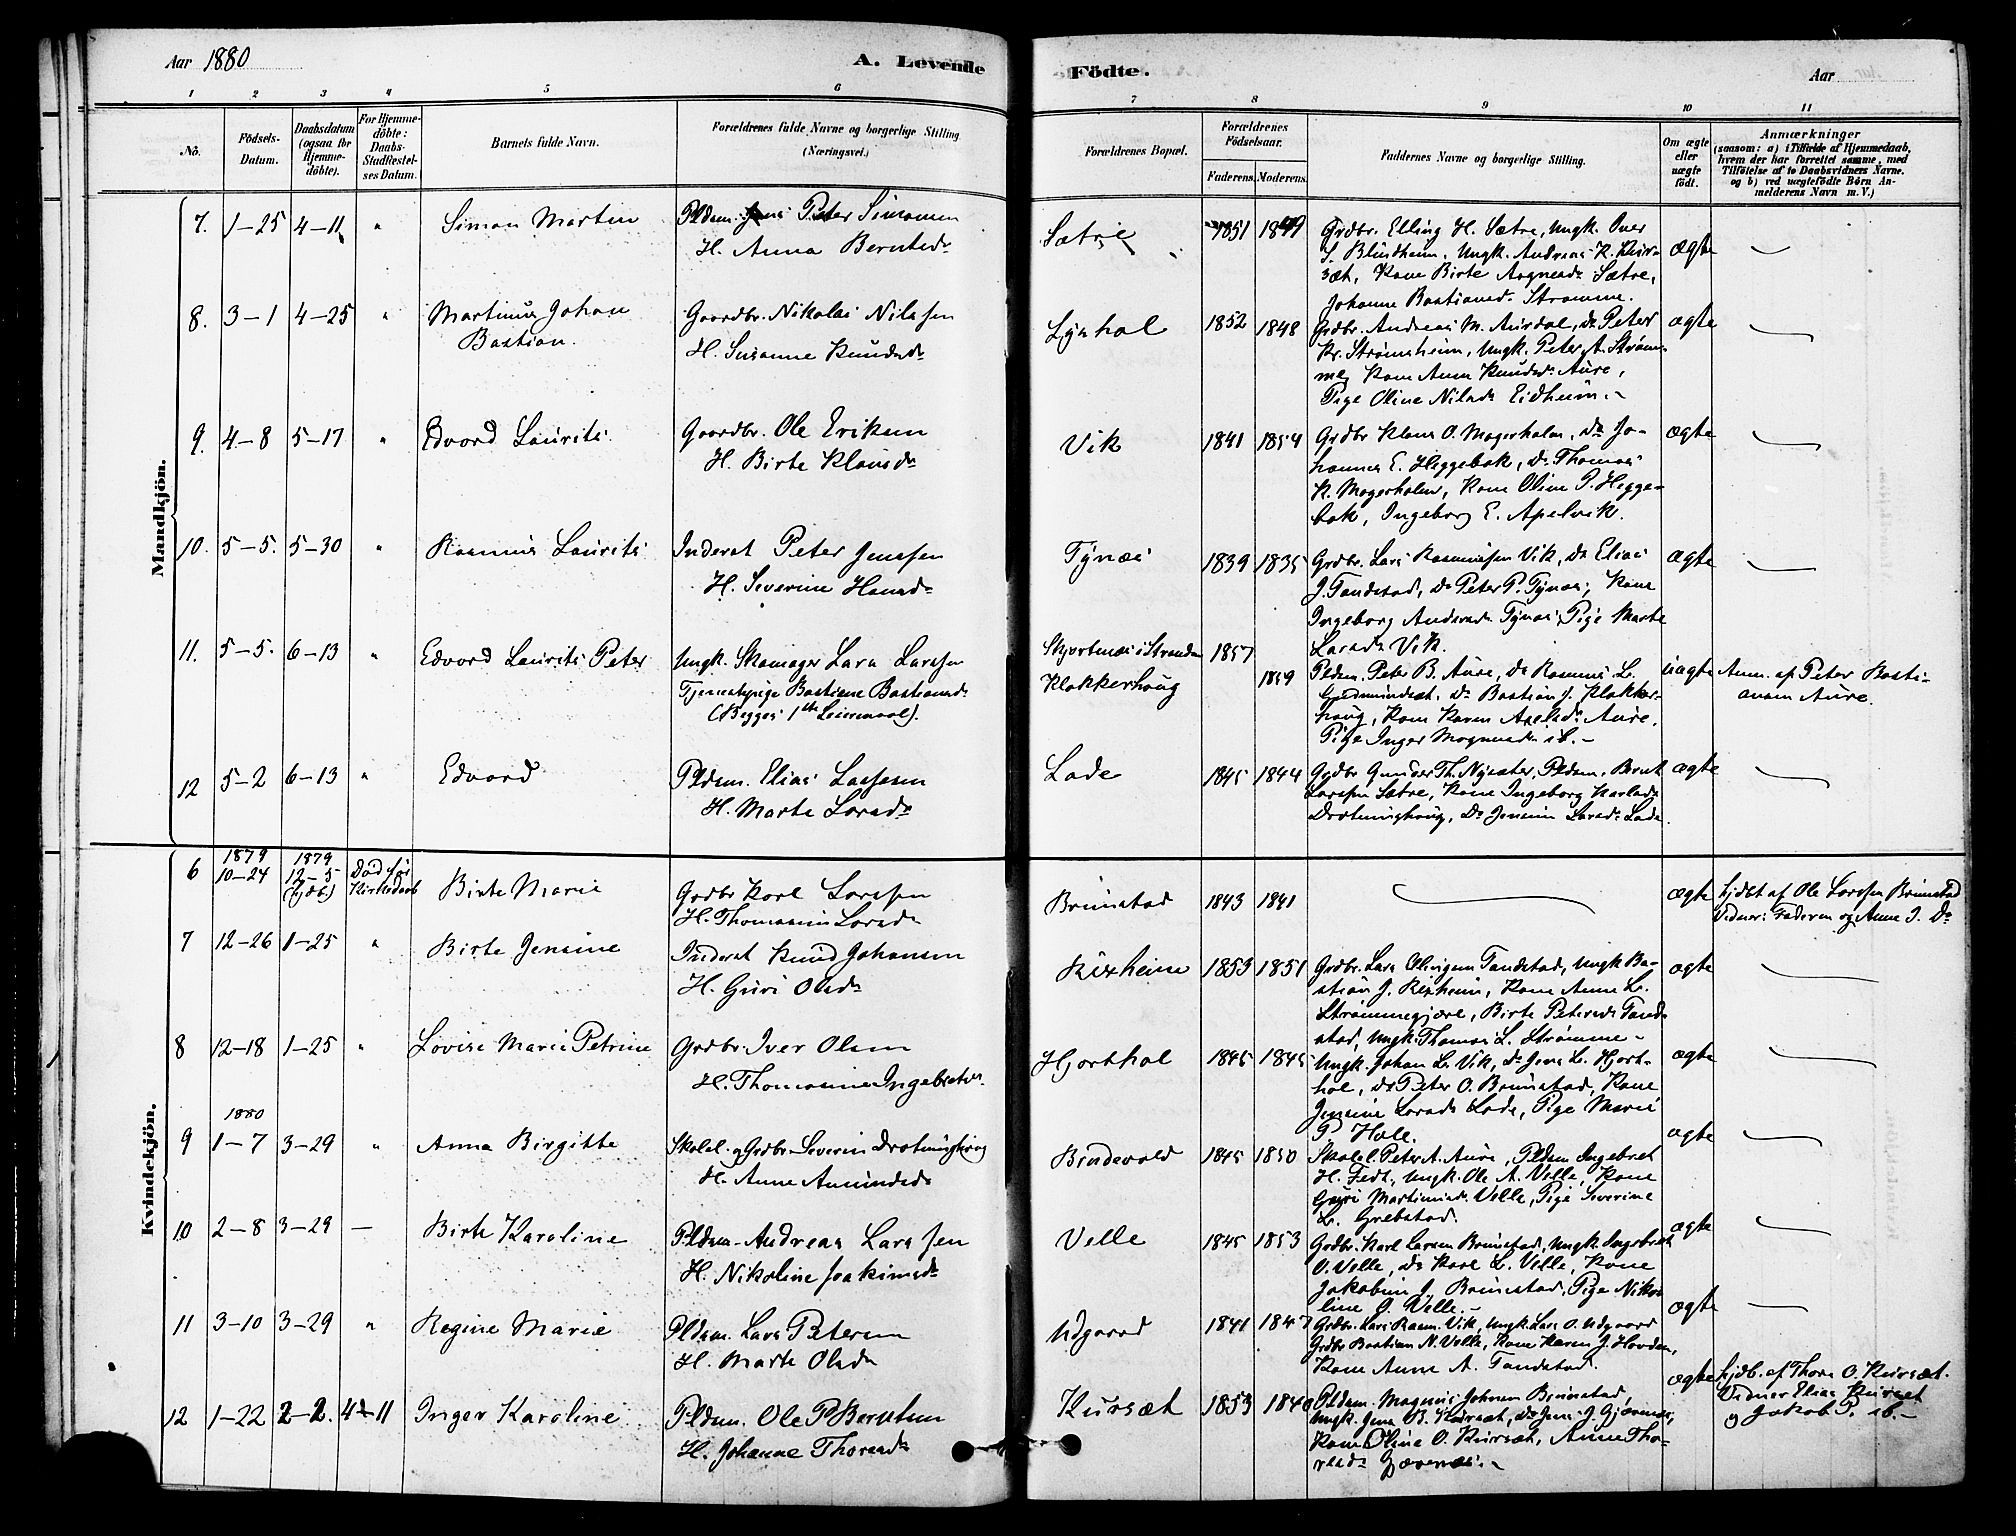 Aar 1880
A. Levende
Födte.
Aar
1 2 3 4 5 6 7 8 9 10 11
No.
Födsels-
Datum.
Daabsdatum
(ogsaa for
Hjemme-
döbte).
For Hjemme-
döbte:
Daabs-
Stadfæstel-
ses Datum.
Barnets fulde Navn.
Forældrenes fulde Navne og borgerlige Stilling
(Næringsvei.)
Forældrenes Bopæl.
Forældrenes
Födselsaar.
Faderens. Moderens.
Faddernes Navne og borgerlige Stilling.
Om ægte
eller
uægte
födt.
Anmærkninger
(saasom: a) i Tilfælde af Hjemmedaab,
hvem der har forrettet samme, med
Tilföielse af to Daabsvidners Navne.
og b) ved uægtefödte Börn An-
melderens Navn m. V.)
Mandkjön.
7. 1-25 4-11 " Simon Martin
Pldsm. Peter Simonsen
H. Anna Berntsd.
Sætre
1851 1849
Grdbr. Elling H. Sætre, Ungk. Iver
S. Blindheim, Ungk. Andreas K. Kur-
sæt, Kone Birte Aagesd. Sætre,
Johanne Bastiansd. Strømme.
ægte
8. 3-1 4-25 " Martinus Johan
Bastian.
Gaardbr. Nikolai Nilssen
H. Susanne Knudsd.
Lynhol
1852 1848
Grdbr. Andreas M. Aurdal, do Peter
Kr. Strømsheim, Ungk. Peter A. Strøm-
me, Kone Anne Knudsd. Aure,
Pige Oline Nilsd. Eidheim.
ægte
9. 4-8 5-17 " Edvard Laurits
Gaardbr. Ole Eriksen
H. Birte Klausd.
Vik
1841 1854
Grdbr Klaus O. Magerholm, do Jo-
hannes E. Heggebak, do Thomas
K. Magerholm, Kone Oline P. Hegge-
bak, Ingeborg E. Apelvik.
ægte
10. 5-5. 5-30 " Rasmus Laurits
Inderst Peter Jenssen
H. Severine Hansd.
Tynæs
1839 1835
Grdbr. Lars Rasmussen Vik, do Elias
J. Tandstad, do Peter P. Tynæs, Kone
Ingeborg Andersd. Tynæs, Pige Marte
Larsd. Vik.
ægte
11. 5-5. 6-13 " Edvard Laurits Peter
Ungk. Skomager Lars Larssen
Tjenestepige Bastiane Bastiansd.
(Begges 1ste Leiermaal).
Skjortnæs i Stranden
Klokkerhoug
1857
1859
Pldsm. Peter B. Aure, do Rasmus L.
Gjedmindset. do Bastian J. Klokker-
houg, Kone Karen Axelsd. Aure,
Pige Inger Mognesd. ib.
uægte
Anm. af Peter Basti-
ansen Aure.
12 5-2 6-13 " Edvard
Pldsm. Elias Lassesen
H. Marte Larsd.
Lade
1845 1844
Grdbr Gunder Th. Nysæter, Pldsm. Bernt
Larssen Sætre, Kone Ingeborg Karlsd.
Drotninghoug, do Jensine Larsd. Lade.
ægte
Kvindekjön.
6 1879
10-24
1879
12-5
(hjdb)
Död för
Kirkedaab
Birte Marie
Grdbr Karl Larssen
H. Thomasine Larsd.
Brunstad
1843 1841
ægte
hjdbt af Ole Larssen Brunstad
Vidner: Faderen og Anne J. do
7 12-26 1-25 " Birte Jensine
Inderst Knud Johansen
H. Guri Olsd.
Rixheim
1853 1851
Grdbr. Lars Tandstad, Ungk. Ba-
stian J. Rixheim, Kone Anne L.
Strømmegjære, Birte Petersd. Tand-
stad, Ungk. Thomas L. Strømme
ægte
8 12-18 1-25 " Lovise Marie Petrine
Grdbr. Iver Olsen
H. Thomasine Ingebrtsd.
Hjorthol
1845 1845
Ungk. Johan L. Vik, do Jens L. Hjort-
hol, do Peter O. Brunstad, Kone
Jensine Larsd. Lade, Pige Marie
P. Hole.
ægte
9 1880
1-7 3-29 " Anna Birgitte
Skolel. og Grdbr. Severin Drotninghoug
H. Anne Amundsd.
Bindevold
1845 1850
Skolel. Peter A. Aure, Pldsm Ingebret
H. Fedt, Ungk. Ole A. Velle, Kone
Guri Martinusd. Velle, Pige Severine
L. Grebstad.
ægte
10 2-8 3-29 — Birte Karoline
Pldsm. Andreas Larssen
H. Nikoline Joakimsd.
Velle
1845 1853
Grdbr. Karl Larsen Brunstad, Ungk. Ingebret
O. Velle, do Karl L. Velle, Kone
Jakobine J. Brunstad, Pige Niko-
line O. Velle.
ægte
11 3-10 3-29 " Regine Marie
Pldsm. Lars Petersen
H. Marte Olsd.
Udgaard
1841 1847
Grdbr. Lars Rasm. Vik, Ungk. Lars O. Udgaard
Grdbr Bastian N. Velle, Kone Karen J. Hovden,
Kone Anne A. Tandstad.
ægte
12 1-22 2-2. 4-11 Inger Karoline
Pldsm. Ole P. Berntsen
H. Johanne Thoresd.
Kursæt
1853 1840
Pldsm. Magnus Johnsen Brunstad,
Ungk. Jens B. Kursæt, do Jens J. Gjævenes,
Kone Oline O. Kursæt, Anne Tho-
resd. Gjævenes.
ægte
hjdb. af Thore O. Kursæt.
Vidner Elias Kursæt
og Jakob P. ib.